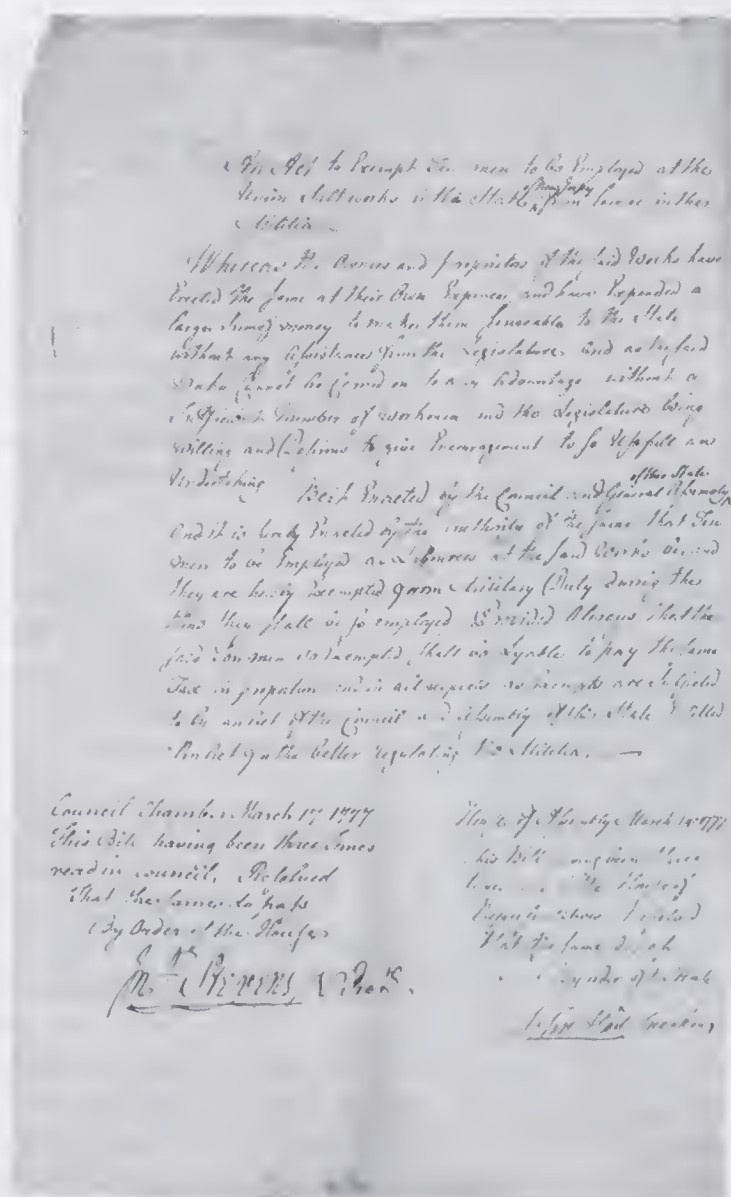 An Act to Exempt Ten men to be Employed at the
Union Saltworks in this State of New Jersey from Service in the
Militia
Whereas the Owners and proprietors of the said Works have
Erected the same at their Own Expence, and have Expended a
large sum of money to make them serviceable to the State
without any Assistance from the Legislature, and as the said
Works Cannot be Carried on to any Advantage without a
Sufficient Number of workmen and the Legislature being
willing and to give Encouragement to so Usefull an
Undertaking Be it Enacted by the Council and General Assembly of this State
And it is hereby Enacted by the authority of the same that Ten
men to be Employed as Labourers at the said Works be and
they are hereby Exempted from Military Duty during the
time they shall be so employed Provided that the
said Ten men so Exempted, shall be Lyable to pay the same
Tax in proportion and in all respects as Exempts are Subjected
to by an Act of the Council and Assembly of this State
An Act for the better regulating the Militia.
Council Chamber March 1777
This Bill having been three times
read in Council, Resolved
That the same do pass
By Order of the House
Stevens
House of Assembly March 1777
This Bill having been three
times the House of
Resolved
That the same do pass
By order of the House
Speaker